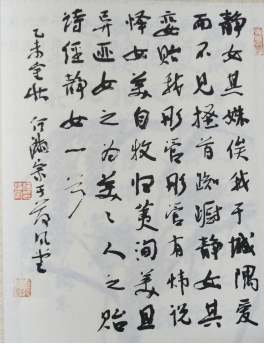 静女其姝俟我于城隅爱
而不见搔首踟蹰静女其
娈贻我彤管彤管有炜说
怿女美自牧归荑洵美且
异匪女之为美々人之贻
詩经静女一首
乙未金秋何满宗于